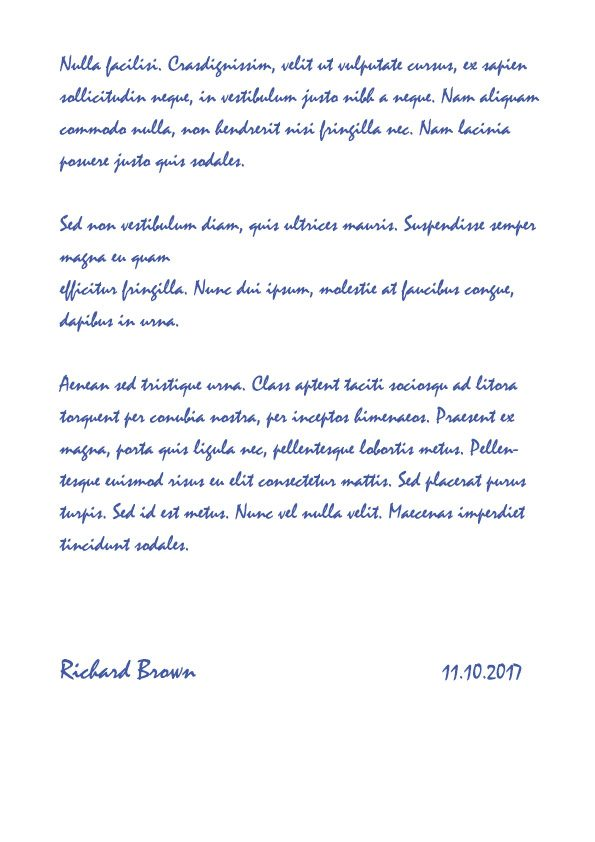 Nulla facilisi. Crasdignissim, velit ut vulputate cursus, ex sapien
sollicitudin neque, in vestibulum justo nibh a neque. Nam aliquam
commodo nulla, non hendrerit nisi fringilla nec. Nam lacinia
posuere justo quis sodales.
Sed non vestibulum diam, quis ultrices mauris. Suspendisse semper
magna eu quam
efficitur fringilla. Nunc dui ipsum, molestie at faucibus congue,
dapibus in urna.
Aenean sed tristique urna. Class aptent taciti sociosqu ad litora
torquent per conubia nostra, per inceptos himenaeos. Praesent ex
magna, porta quis ligula nec, pellentesque lobortis metus. Pellen-
tesque euismod risus eu elit consectetur mattis. Sed placerat purus
turpis. Sed id est metus. Nunc vel nulla velit. Maecenas imperdiet
tincidunt sodales.
Richard Brown 11.10.2017